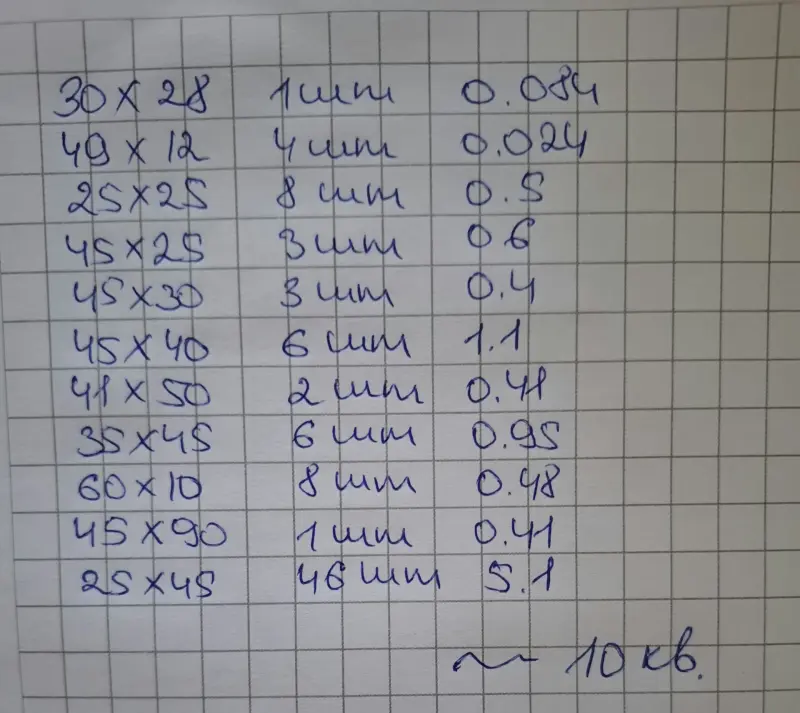 30 x 28 1 шт 0.084
49 x 12 4 шт 0.024
25 x 25 8 шт 0.5
45 x 25 3 шт 0 6
45 x 30 3 шт 0.4
45 x 40 6 шт 1.1
41 x 50 2 шт 0.41
35 x 45 6 шт 0.95
60 x 10 8 шт 0.48
45 x 90 1 шт 0.41
25 x 45 46 шт 5.1
~ 10 кв.